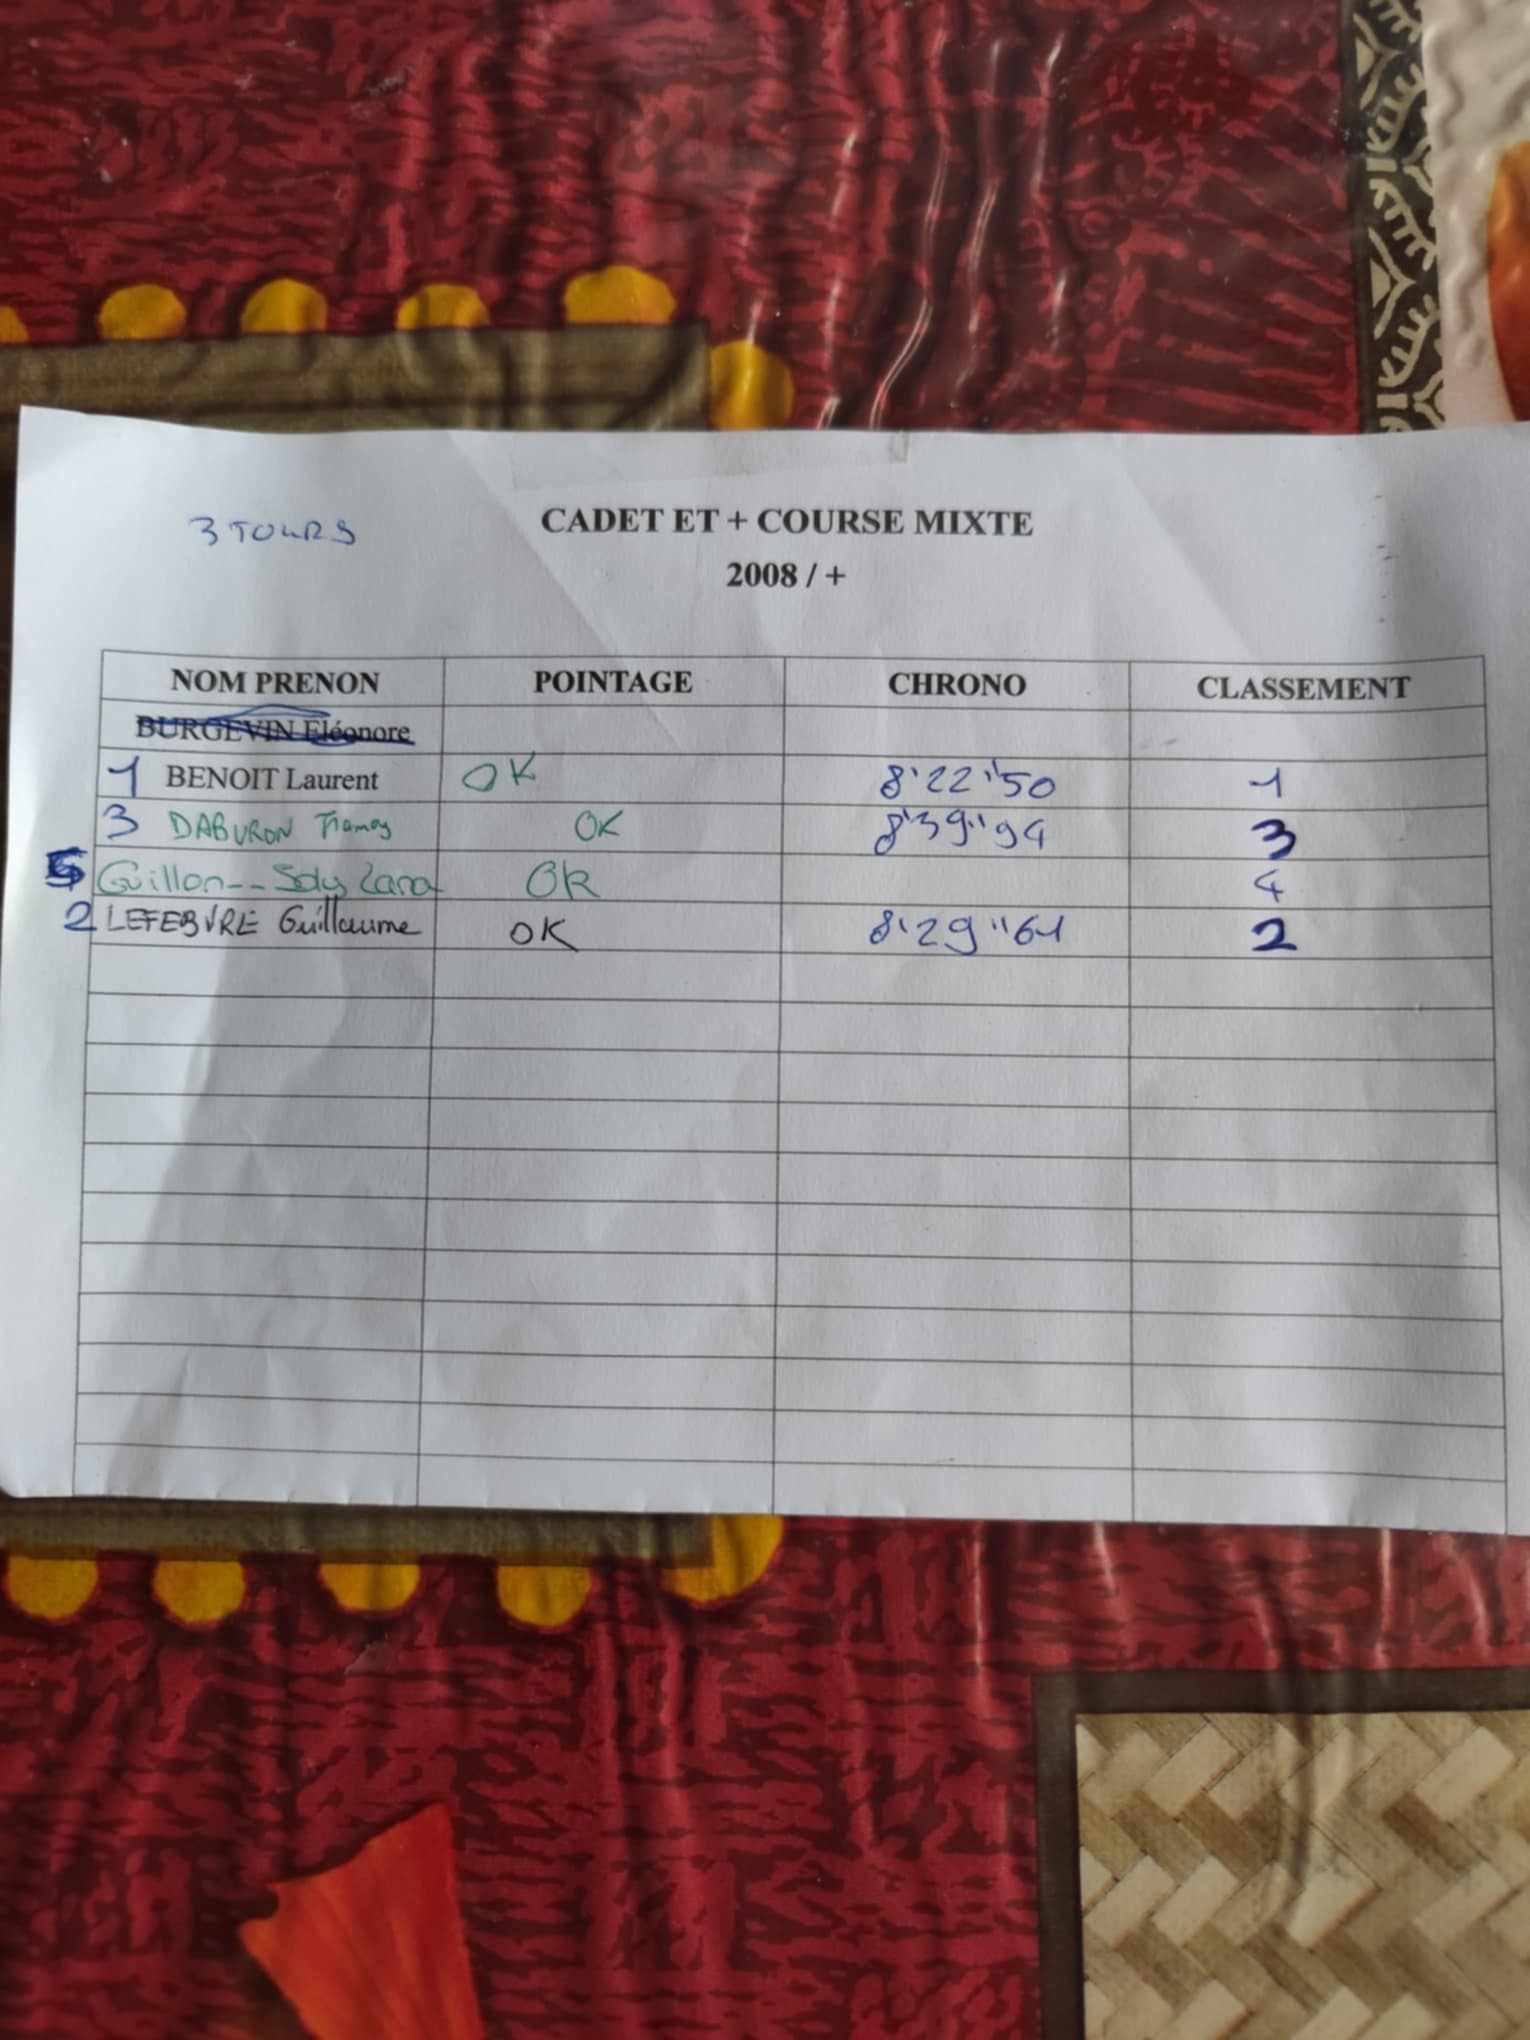 3 TOURS
CADET ET + COURSE MIXTE
2008 / +
NOM PRENON POINTAGE CHRONO CLASSEMENT
BURGEVIN Eléonore
1 BENOIT Laurent OK 8'22''50 1
3 DABURON OK 8'39''94 3
5 Guillon-- OK 4
2 LEFEBVRE Guillaume OK 8'29''61 2